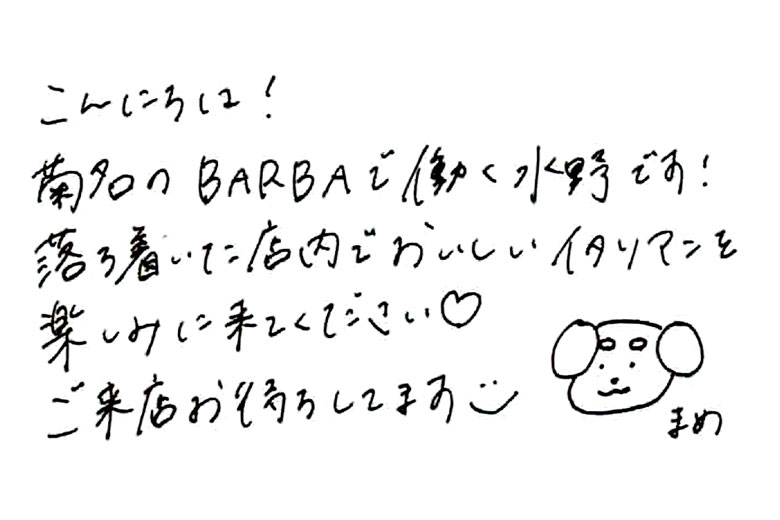 こんにちは！
菊名のBARBAで働く水野です！
落ち着いた店内でおいしいイタリアンを
楽しみに来てください♡
ご来店お待ちしてます
まめ